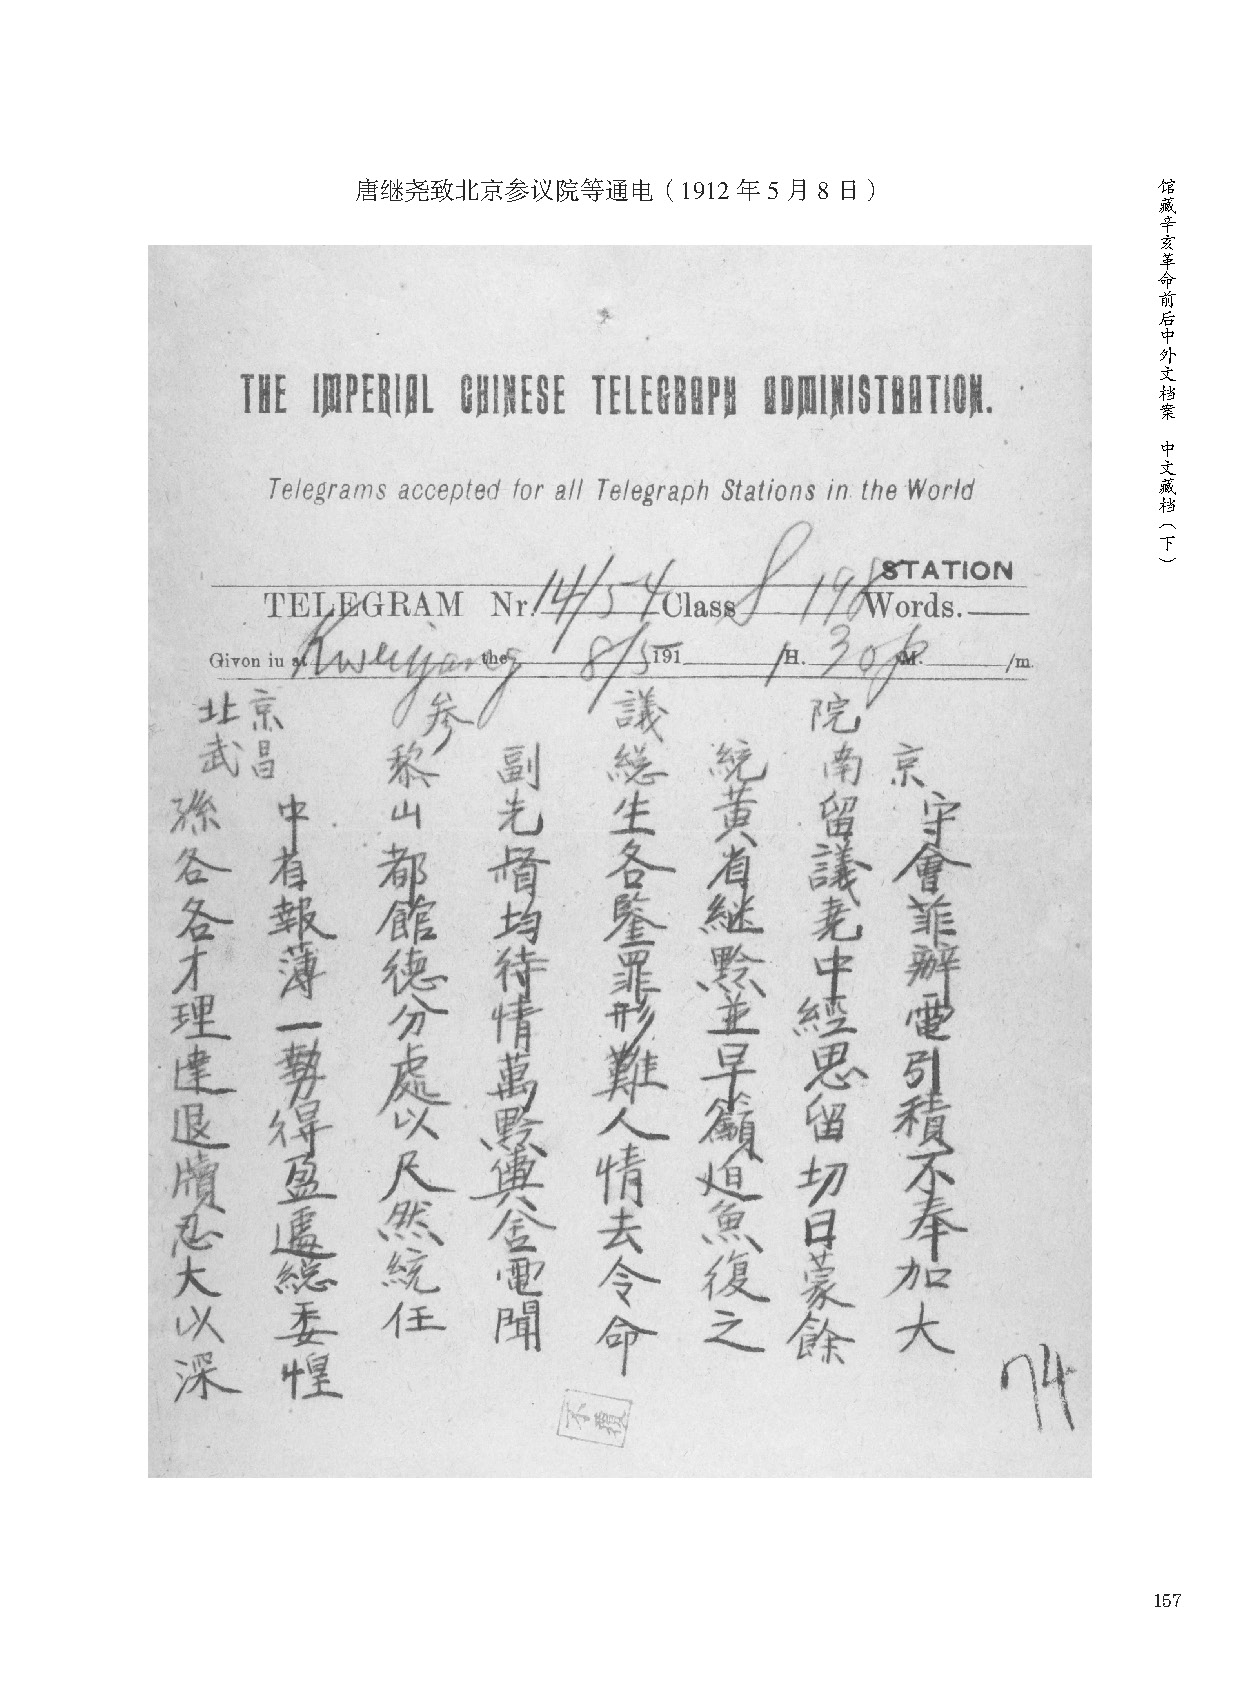 唐继尧致北京参议院等通电（1912年5月8日）
THE IMPERIAL CHINESE TELEGRAPH ADMINISTRATION.
Telegrams accepted for all Telegraph Stations in the World
STATION
TELEGRAM Nr. 14/54 Class S 198 Words.
Given in at Kweiyang the 8/5 191 1 H. 30 p M. /m.
北京參議院
武昌黎副總統南京
孫中山先生黃留守
各省都督各省議會
各報館均鑒繼堯菲
才薄德待罪黔中辦
理一分情形並經電
達勢處萬難早思引
退得以黔人籲留積
牘盈尺輿情迫切不
忍遽然舍去魚日奉
大總統電令復蒙加
以委任聞命之餘大
深惶
74
馆藏辛亥革命前后中外文档案 中文藏档（下）
157